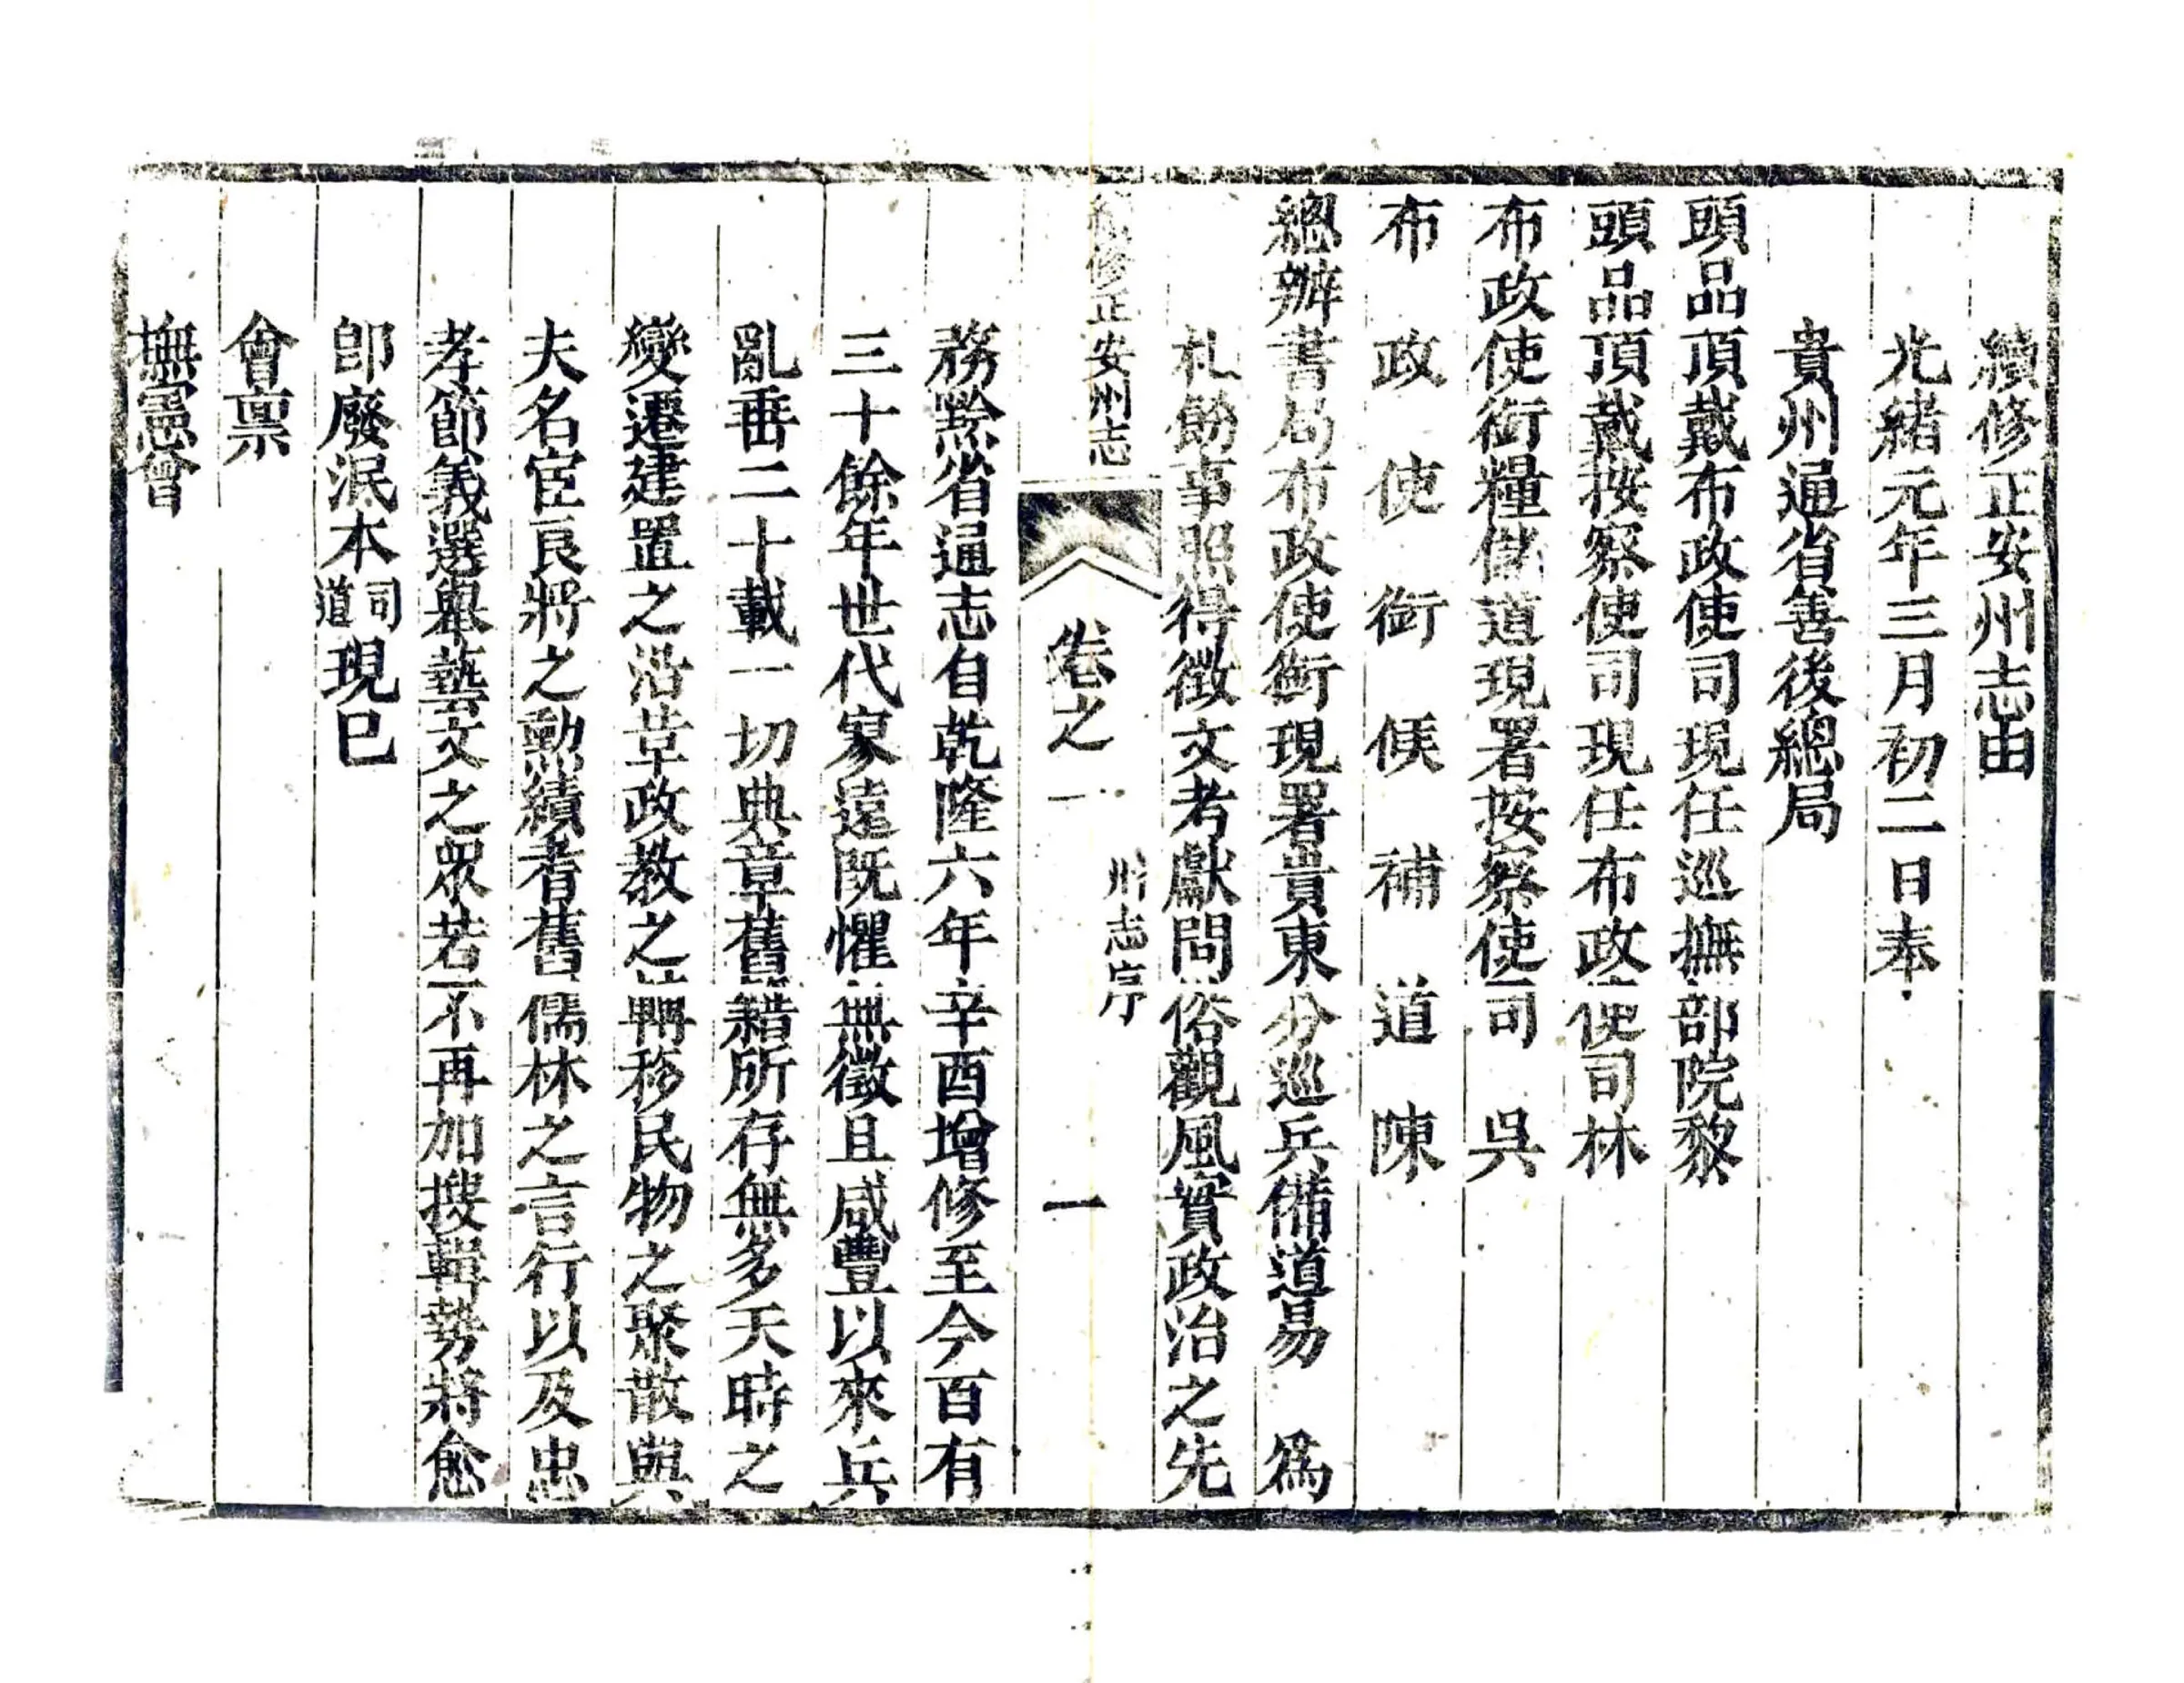 續修正安州志由
光緒元年三月初二日奉
貴州通省善後總局
頭品頂戴布政使司現任巡撫部院黎
頭品頂戴按察使司現任布政使司林
布政使銜糧儲道現署按察使司 吳
布政使銜候補道陳
總辦書局布政使銜現署貴東分巡兵備道易 爲
札飭事照得徵文考獻問俗觀風實政治之先
續修正安州志 卷之一 州志序 一
務黔省通志自乾隆六年辛酉增修至今百有
三十餘年世代寖遠既懼無徵且咸豐以來兵
亂垂二十載一切典章舊籍所存無多天時之
變遷建置之沿革政教之轉移民物之聚散與
夫名宦良將之勳績耆舊儒林之言行以及忠
孝節義選舉藝文之眾若不再加搜輯勢將愈
卽廢泯本司道現已
會稟
撫憲會